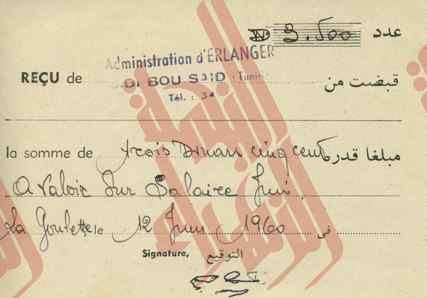 عدد 3.500 No
Administration d'ERLANGER
REÇU de قبضت من
SIDI BOU SAID - Tunisie
Tél. : 34
la somme de trois Dinars cinq cent مبلغا قدره
A Valoir sur Salaire Juin.
La Goulette le 12 Juin 1960 في
Signature, التوقيع